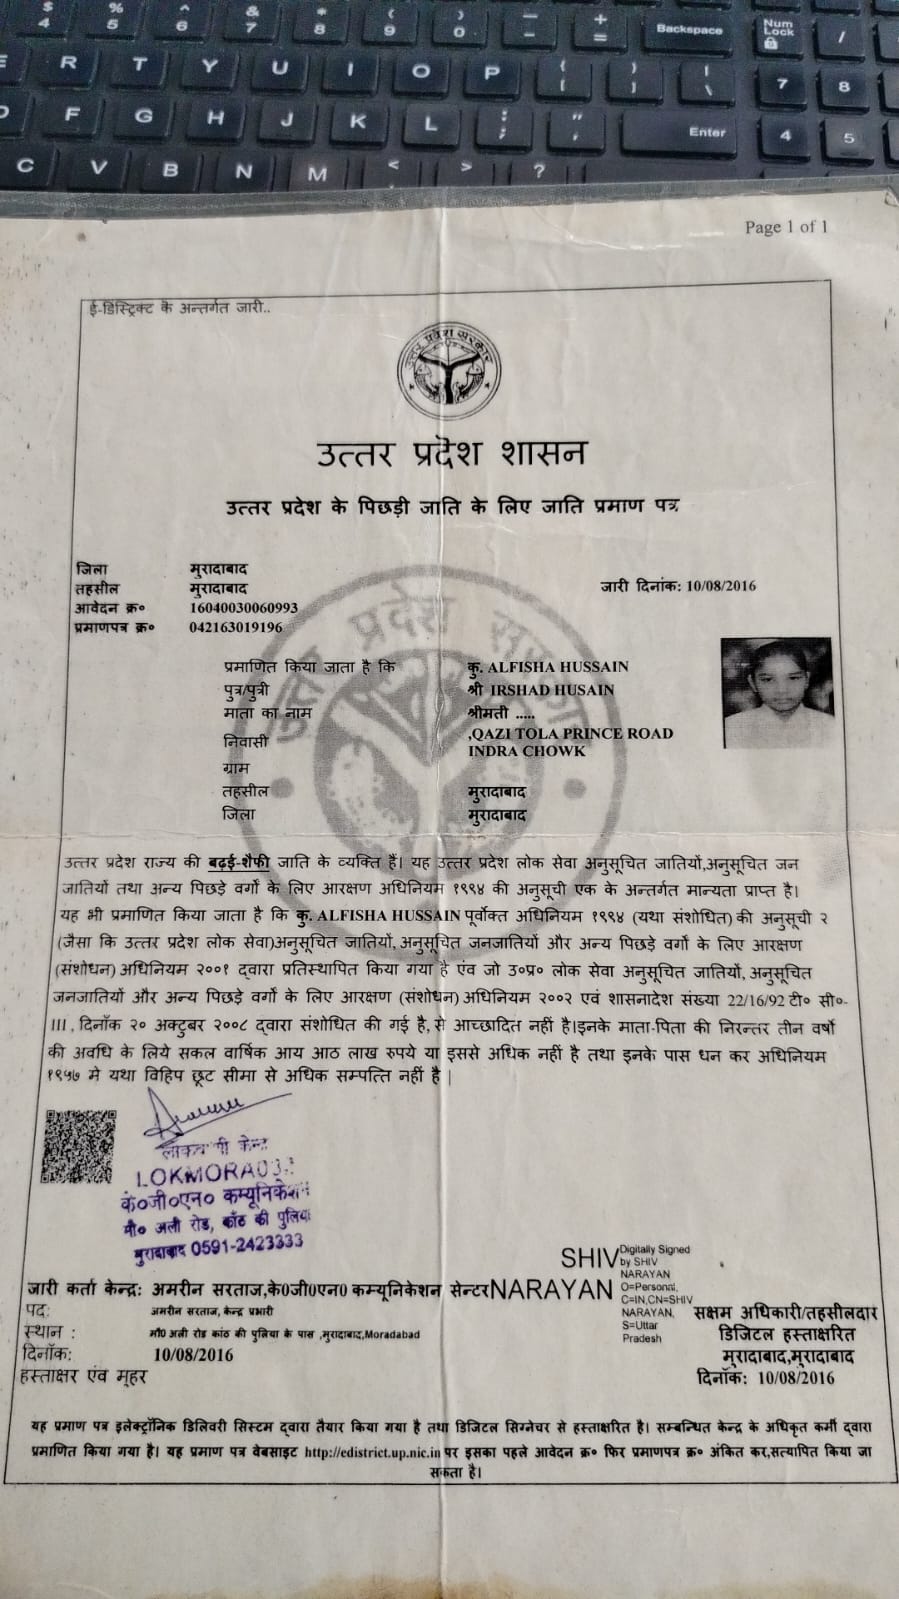 $ 4 % 5 ^ 6 & 7 * 8 ( 9 ) 0 _ - + = Backspace Num Lock /
E R T Y U I O P { [ } ] | \ 7 8
D F G H J K L : ; " ' Enter 4 5
C V B N M < > ?
Page 1 of 1
ई-डिस्ट्रिक्ट के अन्तर्गत जारी..
उत्तर प्रदेश सरकार
उत्तर प्रदेश शासन
उत्तर प्रदेश के पिछड़ी जाति के लिए जाति प्रमाण पत्र
जिला मुरादाबाद
तहसील मुरादाबाद जारी दिनांक: 10/08/2016
आवेदन क्र० 16040030060993
प्रमाणपत्र क्र० 042163019196
प्रमाणित किया जाता है कि कु. ALFISHA HUSSAIN
पुत्र/पुत्री श्री IRSHAD HUSAIN
माता का नाम श्रीमती .....
निवासी ,QAZI TOLA PRINCE ROAD
INDRA CHOWK
ग्राम
तहसील मुरादाबाद
जिला मुरादाबाद
उत्तर प्रदेश राज्य की बढ़ई-शैफी जाति के व्यक्ति हैं। यह उत्तर प्रदेश लोक सेवा अनुसूचित जातियों,अनुसूचित जन
जातियों तथा अन्य पिछड़े वर्गो के लिए आरक्षण अधिनियम १९९४ की अनुसूची एक के अन्तर्गत मान्यता प्राप्त है।
यह भी प्रमाणित किया जाता है कि कु. ALFISHA HUSSAIN पूर्वोक्त अधिनियम १९९४ (यथा संशोधित) की अनुसूची २
(जैसा कि उत्तर प्रदेश लोक सेवा)अनुसूचित जातियों, अनुसूचित जनजातियों और अन्य पिछड़े वर्गो के लिए आरक्षण
(संशोधन) अधिनियम २००१ द्वारा प्रतिस्थापित किया गया है एंव जो उ०प्र० लोक सेवा अनुसूचित जातियों, अनुसूचित
जनजातियों और अन्य पिछड़े वर्गो के लिए आरक्षण (संशोधन) अधिनियम २००२ एवं शासनादेश संख्या 22/16/92 टी० सी०-
III , दिनॉक २० अक्टुबर २००८ द्वारा संशोधित की गई है, से आच्छादित नहीं है।इनके माता-पिता की निरन्तर तीन वर्षो
की अवधि के लिये सकल वार्षिक आय आठ लाख रुपये या इससे अधिक नहीं है तथा इनके पास धन कर अधिनियम
१९५७ मे यथा विहिप छूट सीमा से अधिक सम्पत्ति नहीं है |
केन्द्र
LOKMORA
के०जी०एन० कम्यूनिकेशन
मौ० अली रोड, काँठ की पुलिया
मुरादाबाद 0591-2423333
SHIV NARAYAN
Digitally Signed
by SHIV
NARAYAN
O=Personal,
C=IN,CN=SHIV
NARAYAN,
S=Uttar
Pradesh
जारी कर्ता केन्द्र: अमरीन सरताज,के0जी0एन0 कम्यूनिकेशन सेन्टर
पद: अमरीन सरताज, केन्द्र प्रभारी सक्षम अधिकारी/तहसीलदार
स्थान : मौ0 अली रोड कांठ की पुलिया के पास ,मुरादाबाद,Moradabad डिजिटल हस्ताक्षरित
दिनॉक: 10/08/2016 मुरादाबाद,मुरादाबाद
हस्ताक्षर एंव मूहर दिनॉक: 10/08/2016
यह प्रमाण पत्र इलेक्ट्रॉनिक डिलिवरी सिस्टम द्वारा तैयार किया गया है तथा डिजिटल सिग्नेचर से हस्ताक्षरित है। सम्बन्धित केन्द्र के अधिकृत कर्मी द्वारा
प्रमाणित किया गया है। यह प्रमाण पत्र वेबसाइट http://edistrict.up.nic.in पर इसका पहले आवेदन क्र० फिर प्रमाणपत्र क्र० अंकित कर,सत्यापित किया जा
सकता है।